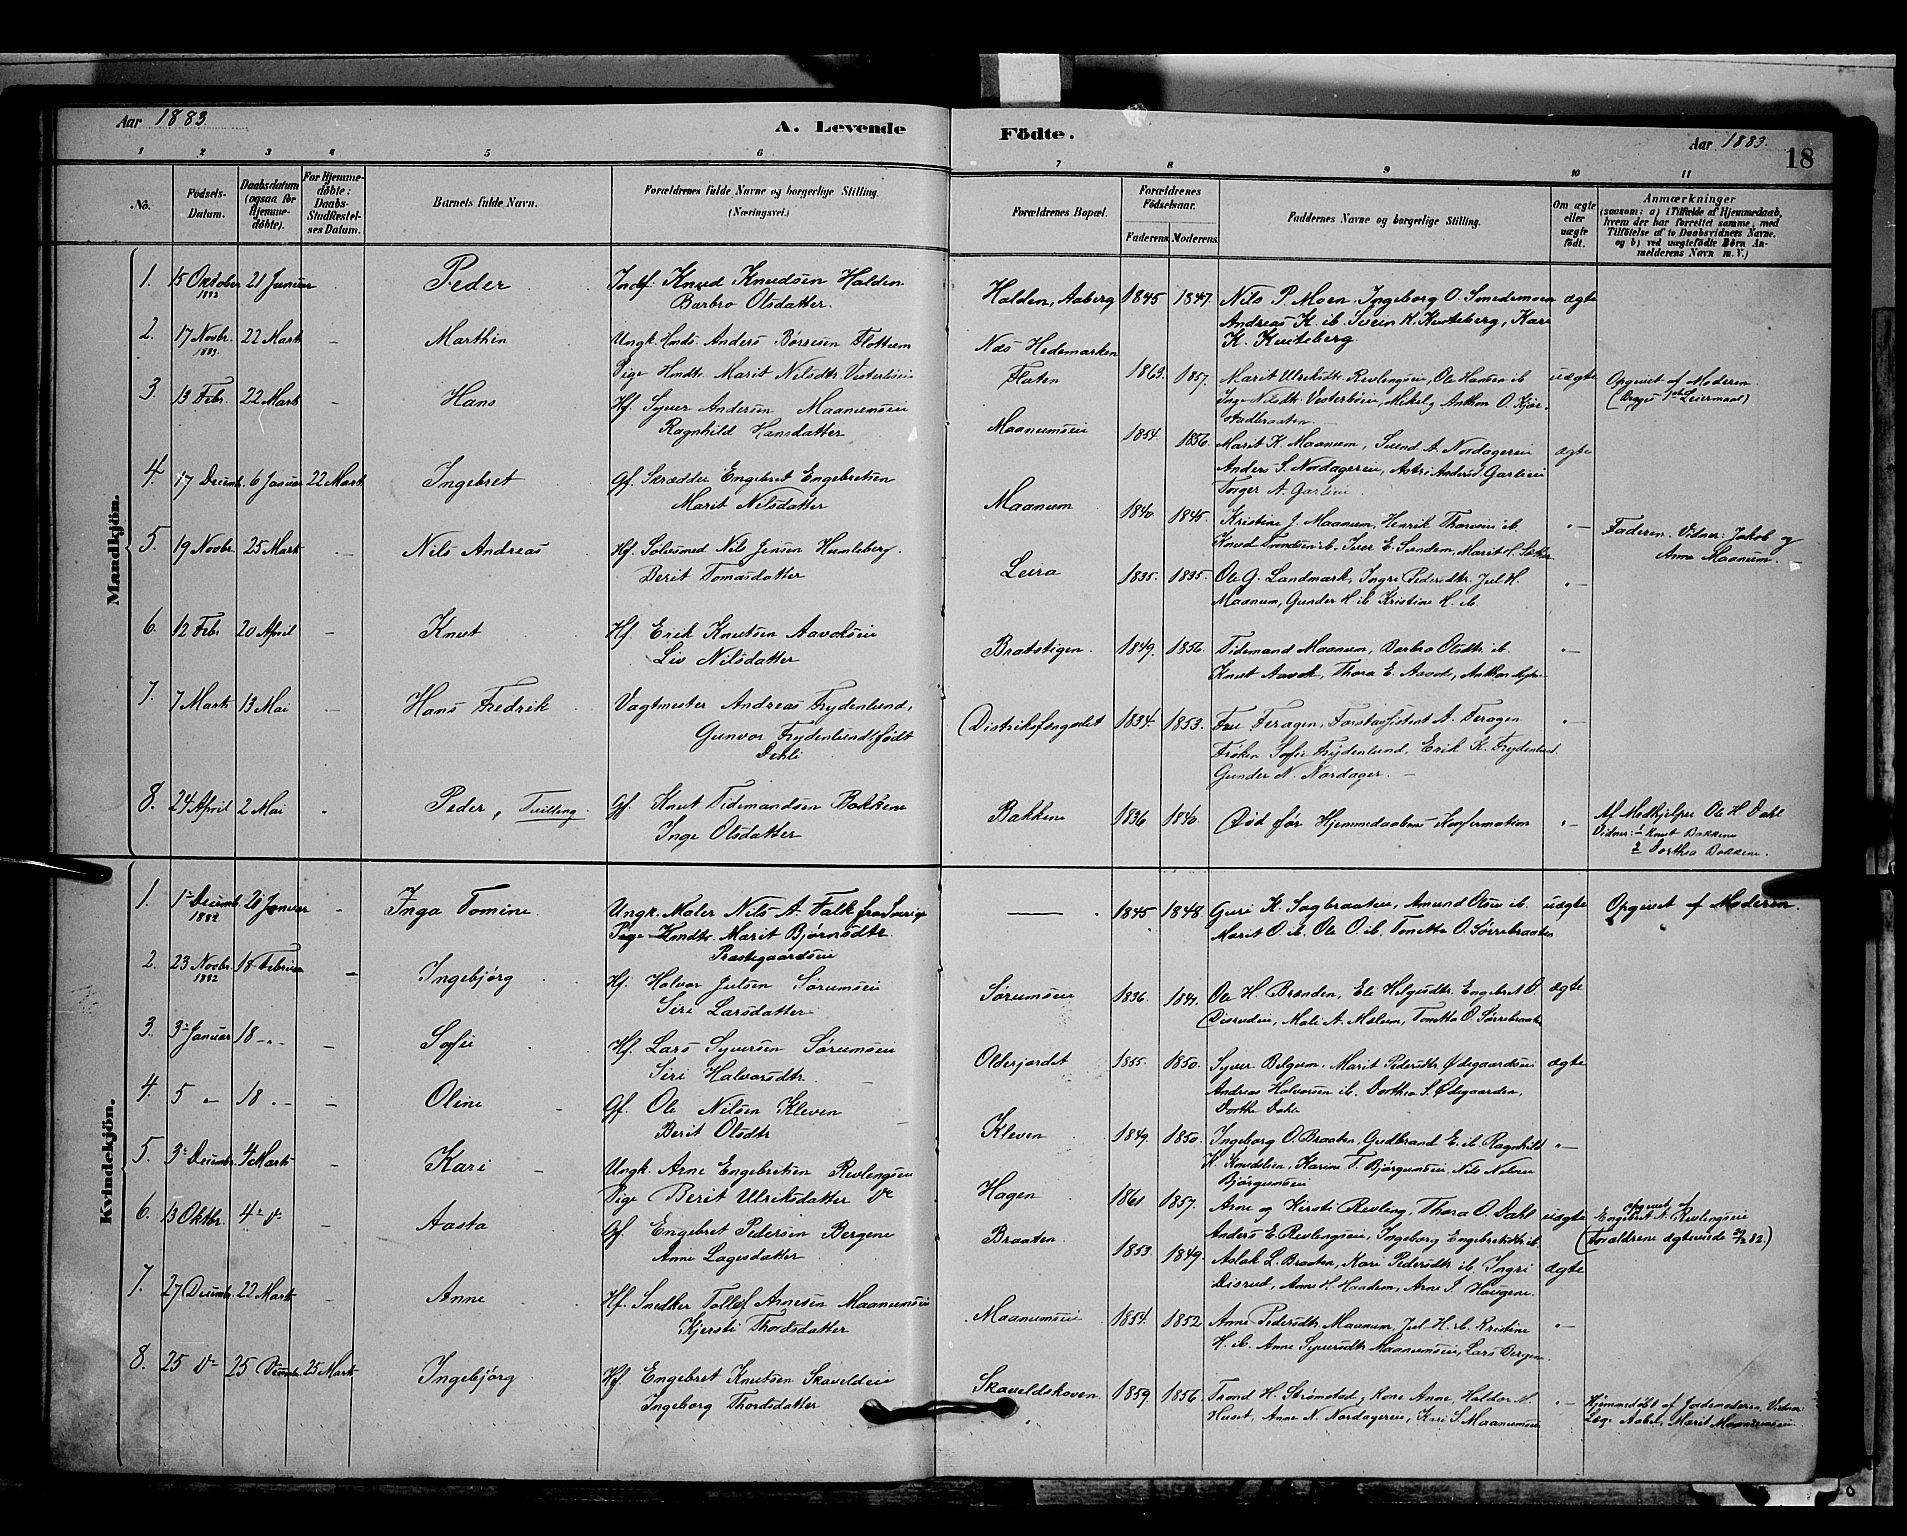 Aar 1883.
A. Levende Födte.
Aar 1883.
18
1 2 3 4 5 6 7 8 9 10 11
No.
Födsels-Datum.
Daabsdatum (ogsaa for Hjemme-döbte).
For Hjemme-döbte: Daabs-Stadfæstel-ses Datum.
Barnets fulde Navn.
Forældrenes fulde Navne og borgerlige Stilling. (Næringsvei.)
Forældrenes Bopæl.
Forældrenes Födselsaar.
Faderens. Moderens.
Faddernes Navne og borgerlige Stilling.
Om ægte eller uægte födt.
Anmærkninger
(saasom: a) i Tilfælde af Hjemmedaab, hvem der har forrettet samme, med Tilföielse af to Daabsvidners Navne, og b) ved uægtefödte Börn An-melderens Navn m. V.)
Mandkjön.
1. 15 Oktober 1882 21 Januar Peder Indf. Knud Knudsen Halden
Barbro Olsdatter.
Halden, Aaberg 1845 1847. Nils P. Moen, Ingeborg O. Smedemoen ægte
Andreas K. ib. Svein K. Kviteberg, Kari
K. Kviteberg
2. 17 Novbr. 1883. 22 Marts - Marthin Ungk. Hmds. Anders Börresen Flottum
Pige Hmdtr. Marit Nilsdtr. Vesterböei
Næs Hedemarken
Flaten 1863. 1857. Marit Ulriksdtr. Revlingseie, Ole Hansen ib. uægte Opgivet af Moderen
Inge Nilsdtr. Vesterböiei, Mikel og Anthon O. Kjær-
stadbraaten (Begges 1ste Leiermaal)
3. 13 Febr. 22 Marts - Hans Hf. Syver Andersen Maanumseie
Ragnhild Hansdatter
Maanumseie 1854. 1856. Marit K. Maanum, Svend A. Nordagereie ægte
Anders S. Nordagereie, Astri Anders Garliei
Torger A. Garliei
4. 17 Decemb. 6 Januar 22 Marts Ingebret Gf. Skrædder Engebret Engebretsen
Marit Nilsdatter
Maanum 1840 1845. Kristine J. Maanum, Henrik Thoresen ib. -"-
Knud Trondsen ib. Iver E. Sundem, Marit
Faderen. Vidner: Jakob og
Anne Maanum.
5. 19 Novbr. 25 Marts - Nils Andreas Hf. Solvsmed Nils Jensen Humleberg.
Berit Tomasdatter
Leira 1835. 1835. Ole G. Landmark, Ingri Pedersdtr. Juel H. -"-
Maanum, Gunder H. ib. Kristine H. ib.
6. 12 Febr 20 April - Knut Hf. Erik Knutsen Aavokseie
Liv Nilsdatter
Bratstigen. 1849. 1856. Tidemand Maanum, Barbro Olsdtr. ib. -"-
Knut Aavok, Thora E. Aavok, Anthon
7. 7 Marts 13 Mai - Hans Fredrik Vagtmester Andreas Frydenlund,
Gunvor Frydenlund, født
Dehli
Distriksfengslet 1834. 1853. Fru Feragen, Forstassistent A. Feragen -"-
Frøken Sofie Frydenlund, Erik K. Frydenlund,
Gunder N. Nordager. -
8. 24 April 2 Mai " Peder, Tvilling. Gf. Knut Tidemandsen Bakkene
Inge Olsdatter
Bakkene 1836 1840. Død før Hjemmedaabens Konfirmation "- Af Medhjelper Ole H. Dahl
Vidner: 1 Knut Bakkene
2 Dorthea Bakkene.
Kvindekjön.
1. 1ste Decemb. 1882 21 Januar - Inga Tomine. Ungk. Maler Nils A. Falk fra Sverige
Pige Hmdtr. Marit Bjørnsdtr.
Præstegaardseie
1845 1848. Guri K. Sagbraaten, Amund Olsen ib. uægte Opgivet af Moderen.
Marit O. ib. Ole O. ib. Tonetta O. Sørrebraaten
2. 23 Novbr. 1882 18 Februar - Ingebjørg Hf. Halvor Julsen Sørumseie
Siri Larsdatter
Sørumseie 1836. 1841. Ole H. Brænden, Eli Helgesdtr. Engebret O. ægte
Disrudeie, Mali A. Mælum, Tonetta O. Sørrebraaten
3. 3- Januar 18 -"- - Sofie Hf. Lars Syversen Sørumseie
Siri Halvorsdtr.
Olderjordet 1855. 1850. Syver Belgum, Marit Pedersdtr. Ødegaardseie ægte
Andreas Halvorsen ib. Dorthea S. Ødegaarden,
Dorthe Dahl
4. 5 " 18 -"- - Oline Gf. Ole Nilsen Kleven
Berit Olsdtr
Kleven 1849. 1850. Ingeborg O. Braaten, Gudbrand E. ib. Ragnhild "-
K. Knudslien, Karine T. Bjørgumseie Nils Nilsen
Bjørgumseie
5. 3- Decembr. 4 Marts - Kari Ungk. Arne Engebretsen Revlingseie
Pige Berit Ulriksdatter do
Hagen 1861 1857. Arne og Kirsti Revling, Thora O. Dahl uægte opgivet af
Engebret A. Revlingseie
Anders E. Revlingseie, Ingeborg Engebretsdtr. ib. (Forældrene ægteviede 82)
6. 13 Oktbr. 4- do - Aasta Gf. Engebret Pedersen Bergene
Anne Lagesdatter
Braaten 1853. 1849. Aslak L. Braaten, Kari Pedersdtr. ib. Ingri ægte
Disrud, Anne H. Haadem, Arne I. Haugene.
7. 27 Decemb. 22 Marts - Anne Hf. Snedker Tollef Arnesen Maanumseie
Kjersti Thordsdatter
Maanumseie 1854. 1852 Anne Pedersdtr. Maanum, Jul H. ib. Kristine "-
H. ib. Anne Syversdtr. Maanumseie, Lars Bergene
8. 25 do 25 Decemb. 25 Marts Ingebjørg Hf. Engebret Knutsen Skaveldeie
Ingeborg Thordsdatter
Skaveldskoven 1859. 1856. Trond H. Strømstad, Kone Anne, Haldor "-
Huset, Anne N. Nordagereie, Kari S. Maanumseie
Hjemmedøbt af Jordemoderen. Vidner
Lage Aabel, Marit Maanumseie